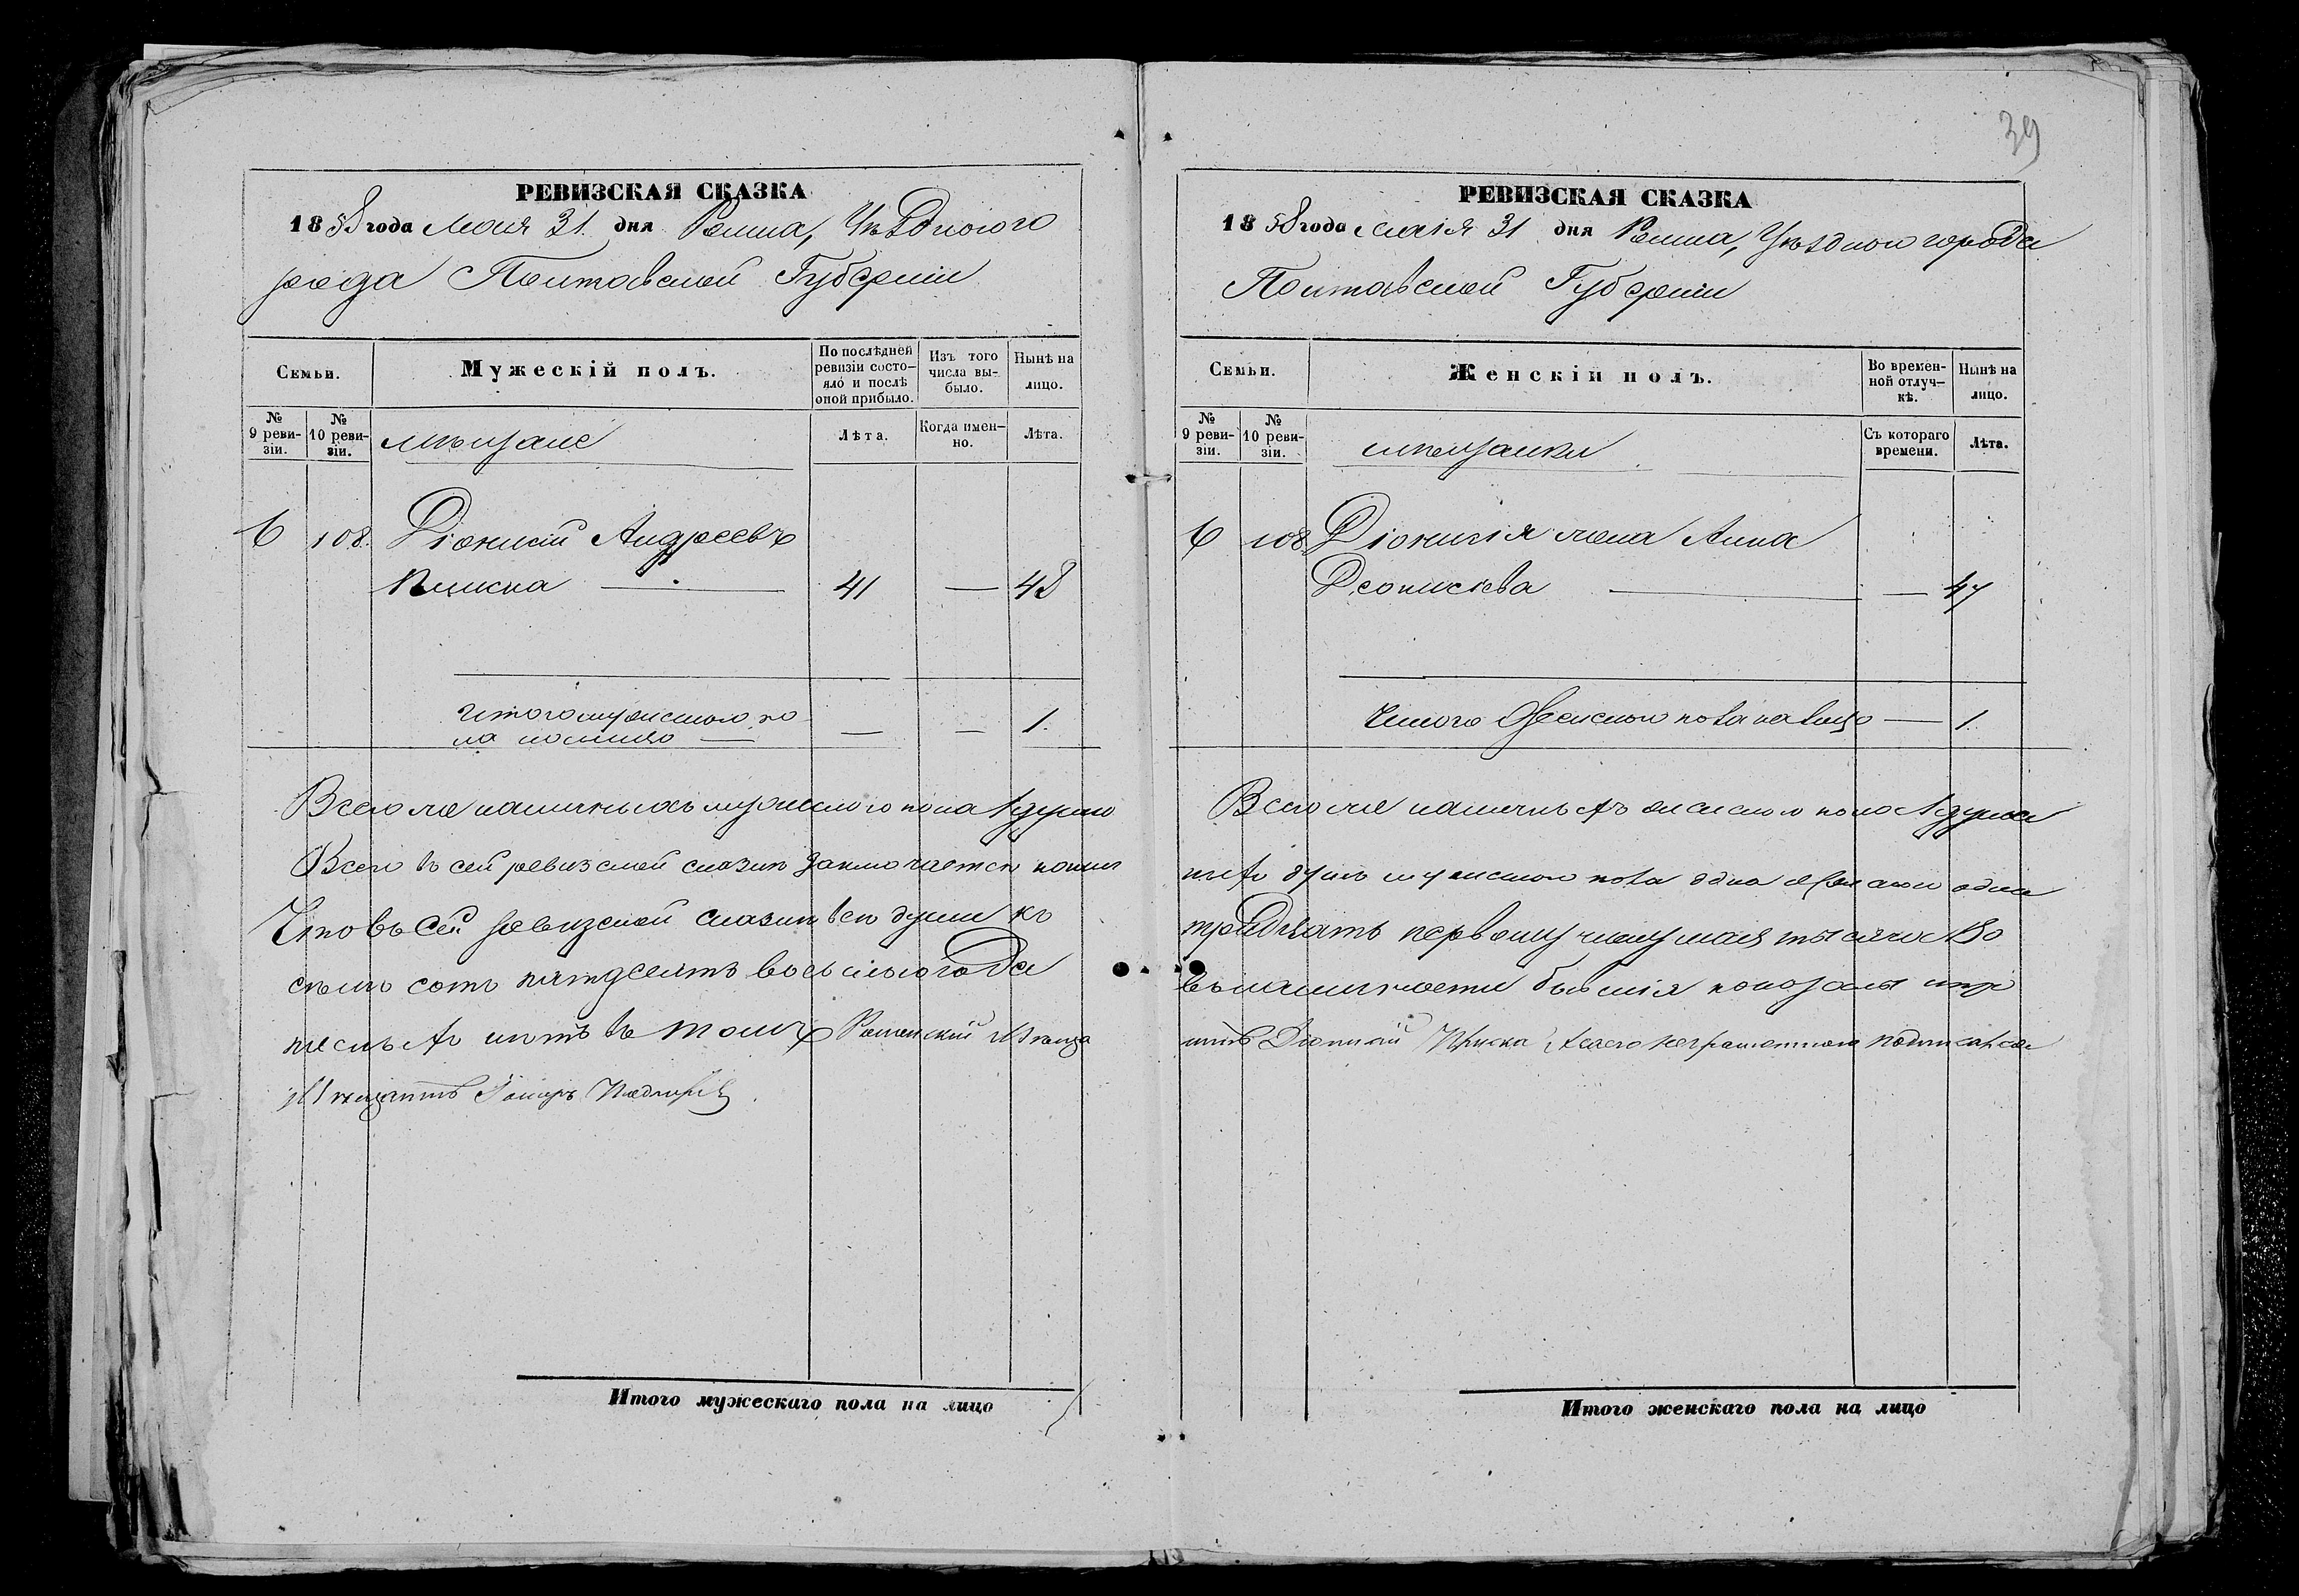 39
РЕВИЗСКАЯ СКАЗКА
1858 года Маія 31 дня Ромна, Уѣзднаго го
рода Полтавской Губерніи
Семьи.
Мужескій полъ.
По послѣдней ревизіи состо-
яло и послѣ оной прибыло.
Изъ того числа вы-
было.
Нынѣ на лицо.
№ 9 реви-
зіи.
№ 10 реви-
зіи.
мѣщане
Лѣта.
Когда имен-
но.
Лѣта.
6 108. Діонисій Андреевъ
41 — 48
Итого мужескаго по
ла налицо — — — 1.
Всего же наличныхъ мужескаго пола 1 душа
Всего въ сей ревизской сказкѣ заключается налич
Что въ сей ревизской сказкѣ всѣ души къ
семь сотъ пятдесятъ восьмого года
писныхъ нѣтъ въ томъ Роменскій Мѣщан
РЕВИЗСКАЯ СКАЗКА
1858 года маія 31 дня Ромна, Уѣзднаго города
Полтавской Губерніи
Семьи.
Женскій полъ.
Во времен-
ной отлуч-
кѣ.
Нынѣ на лицо.
№ 9 реви-
зіи.
№ 10 реви-
зіи.
мѣщанки
Съ котораго времени.
Лѣта.
6 108 Діонисія жена Анна
— 47
Итого Женскаго пола налицо — 1.
Всего же наличныхъ женскаго пола 1 душа
ныхъ душъ мужескаго пола одна Женскаго одна
тридцать первому числу маія тысяча
въ наличности бывшія показаны и про
Діонисій
неграмотного подписался
Итого мужескаго пола на лицо
Итого женскаго пола на лицо